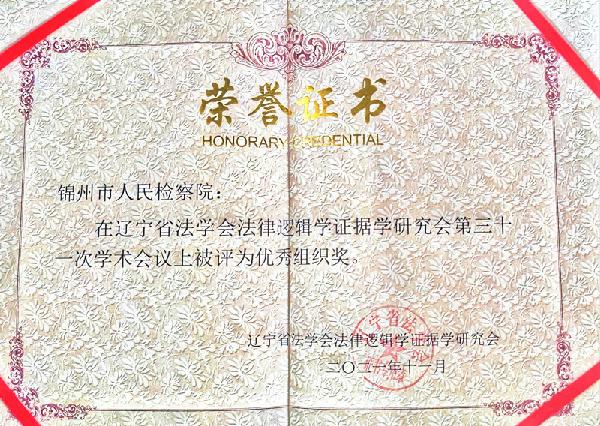 荣誉证书
HONORARY CREDENTIAL
锦州市人民检察院：
在辽宁省法学会法律逻辑学证据学研究会第三十
一次学术会议上被评为优秀组织奖。
辽宁省法学会法律逻辑学证据学研究会
二〇二一年十一月